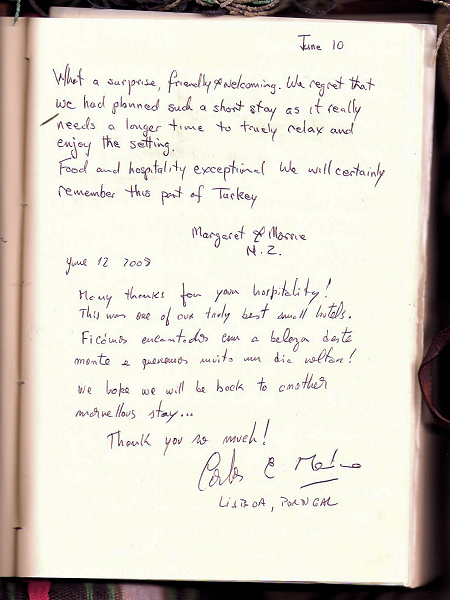 June 10
What a surprise, friendly & welcoming. We regret that
we had planned such a short stay as it really
needs a longer time to truely relax and
enjoy the setting.
Food and hospitality exceptional We will certainly
remember this part of Turkey
Margaret &
N.Z.
June 12 2009
Many thanks for your hospitality!
This was one of our truly best small hotels.
Ficámos encantados com a beleza deste
monte e queremos muito um dia voltar!
We hope we will be back to another
marvellous stay...
Thank you so much!
Carlos E
LISBOA, PORTUGAL